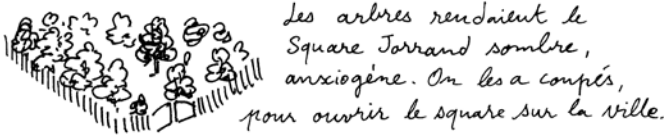 Les arbres rendaient le
Square Jorrand sombre,
anxiogène. On les a coupés,
pour ouvrir le square sur la ville.